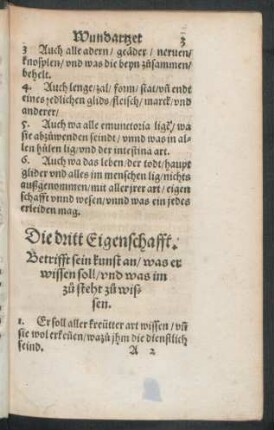 Wundartzet 3
3 Auch alle adern / geäder / neruen /
knospten / vnd was die beyn zůsammen /
behelt.
4. Auch lenge / zal / form / stat / vñ endt
eines yedlichen glids / fleisch / marck / vnd
anderer /
5. Auch wa alle emunctoria ligẽ / wa
sie abzůwenden seindt / vnnd was in al-
len hülen lig / vnd der intestina art.
6. Auch wa das leben / der todt / haupt
glider vnd alles im menschen lig / nichts
außgenommen / mit aller jrer art / eigen
schafft vnnd wesen / vnnd was ein jedes
erleiden mag.
Die dritt Eigenschafft.
Betrifft sein kunst an / was er
wissen soll / vnd was im
zů steht zů wis-
sen.
1. Er soll aller kreütter art wissen / vñ
sie wol erkeñen / wazů jhm die dienstlich
seind. A 2